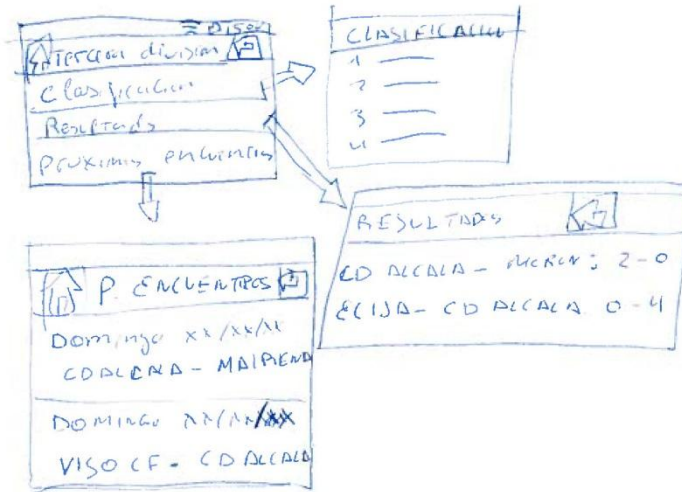 15:00
Tercera división
Clasificación
Resultados
Próximos encuentros
CLASIFICACION
1
2
3
4
RESULTADOS
CD ALCALA - : 2-0
ECIJA - CD ALCALA 0-4
P. ENCUENTROS
Domingo xx/xx/xx
CD ALCALA - MAIRENA
DOMINGO xx/xx/xx
VISO CF - CD ALCALA